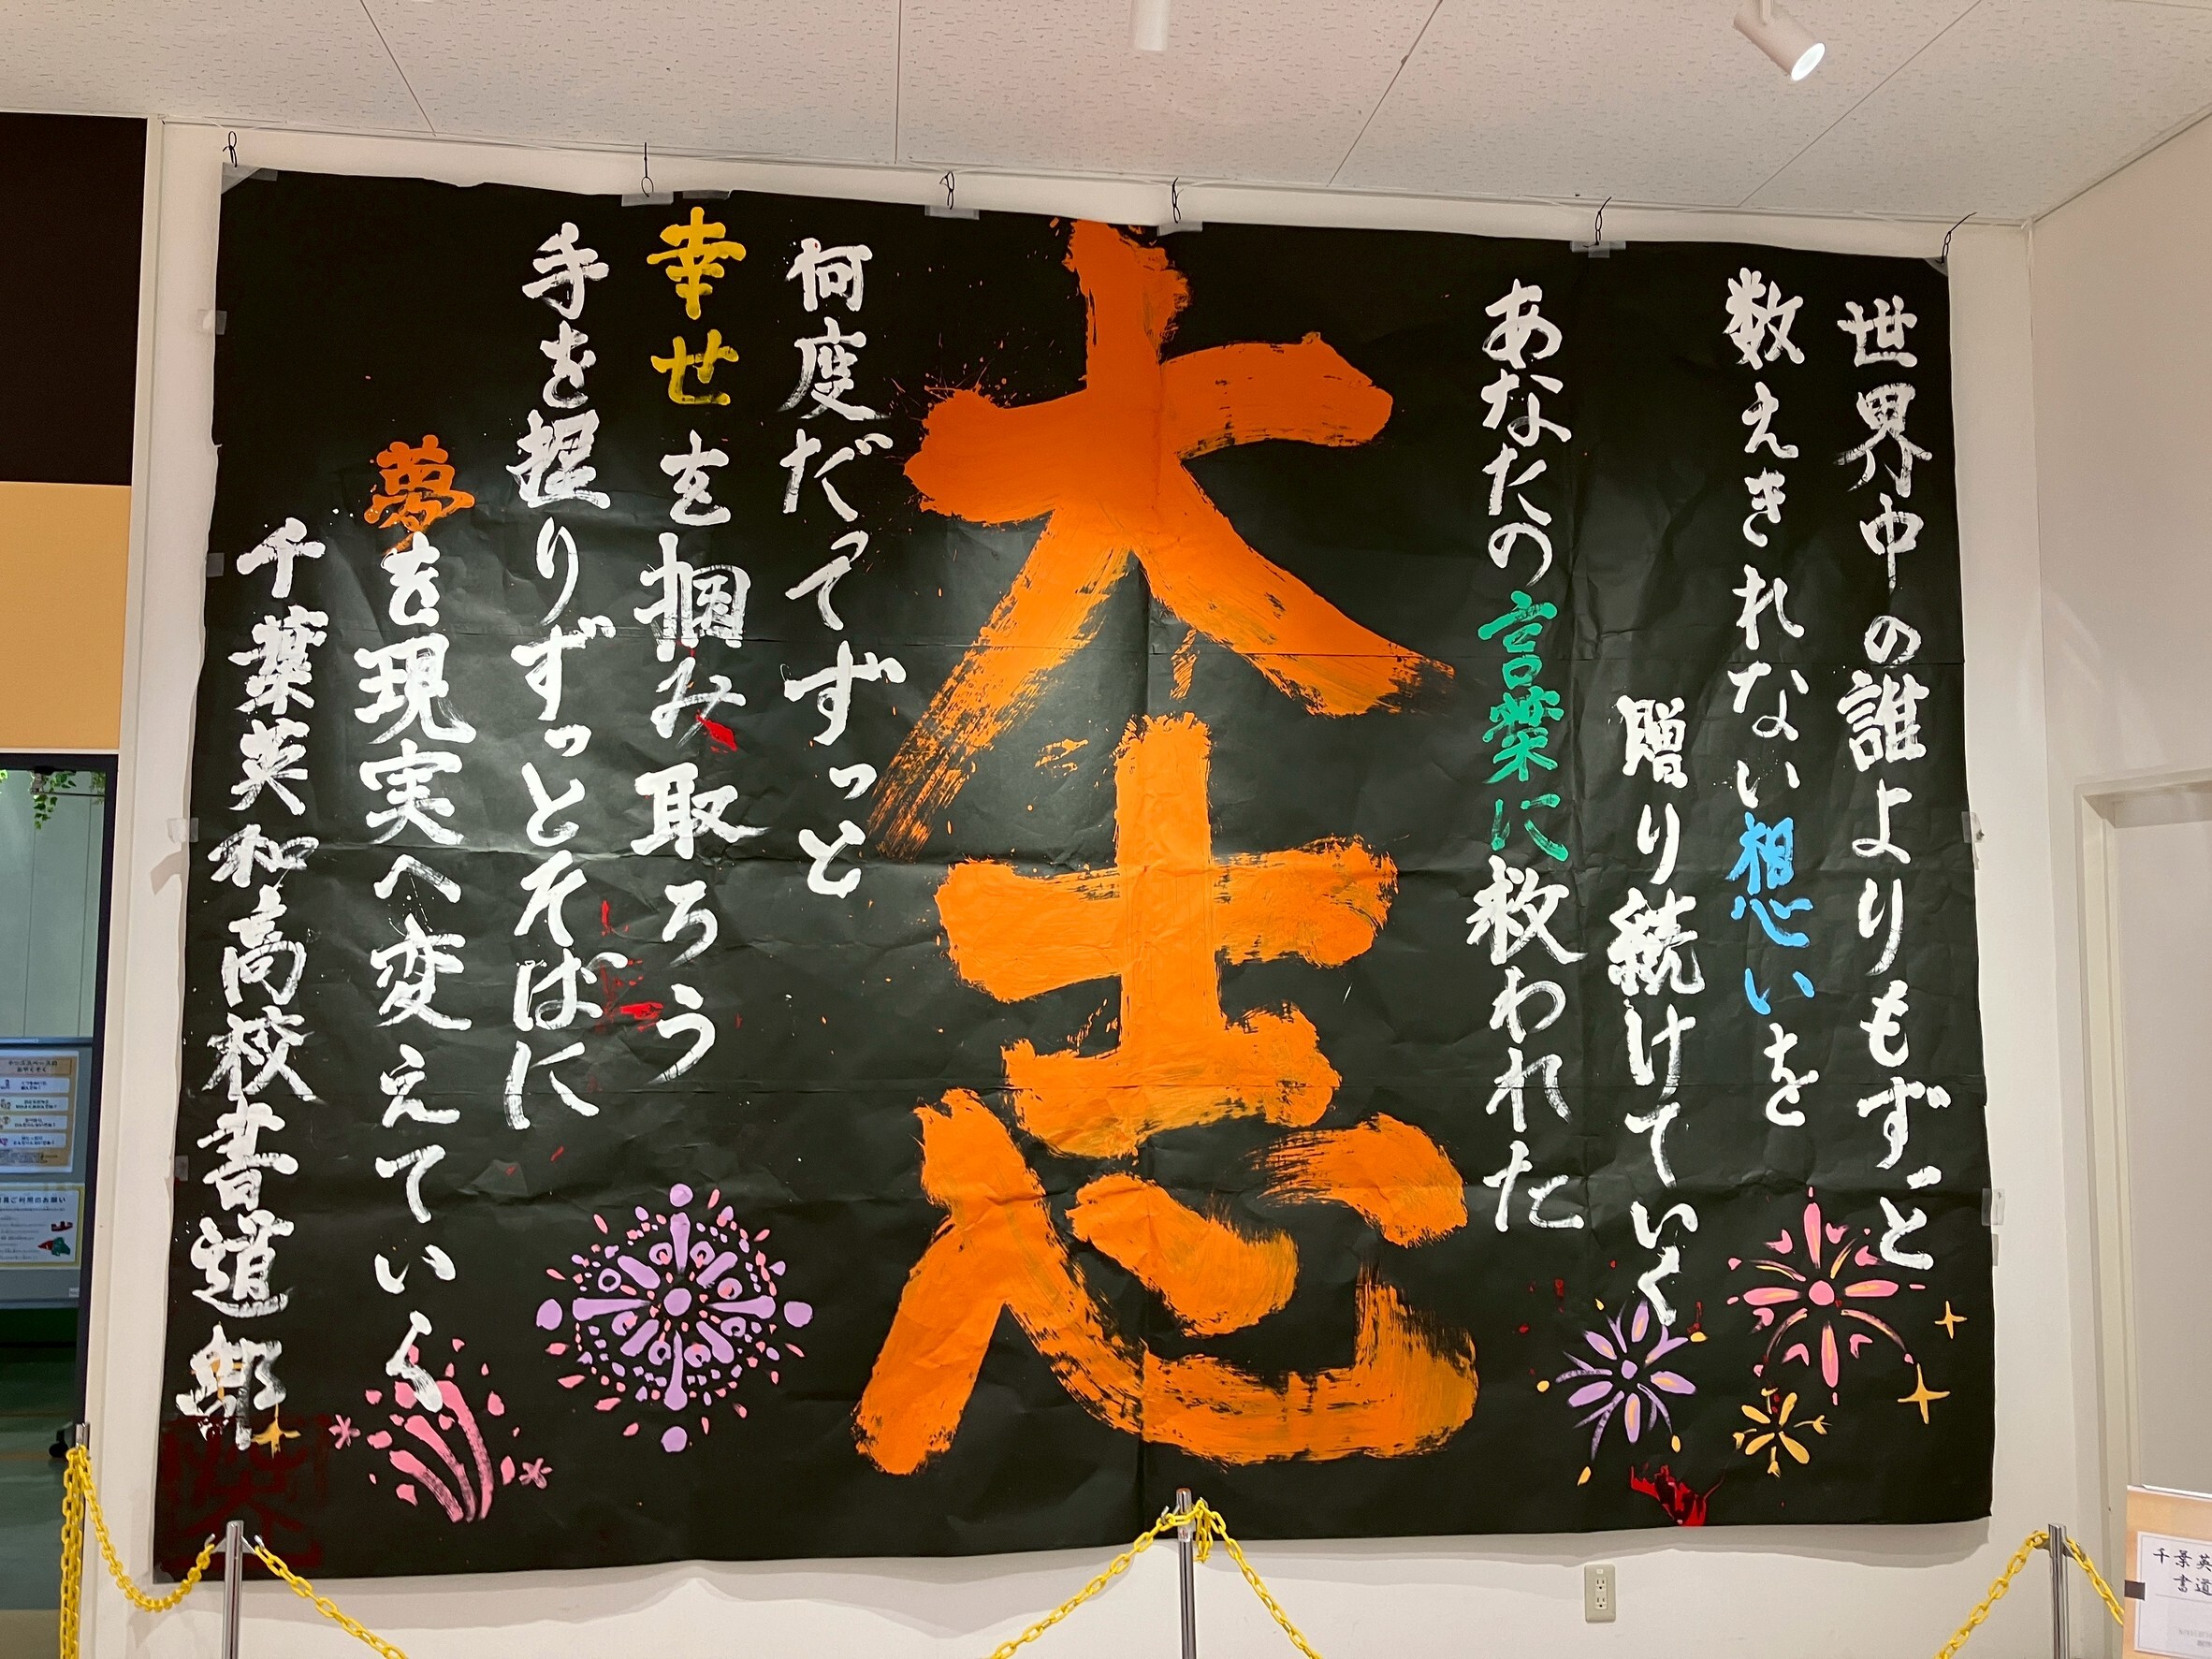 世界中の誰よりもずっと
数えきれない想いを
贈り続けていく
あなたの言葉に救われた
大志
何度だってずっと
幸せを掴み取ろう
手を握りずっとそばに
夢を現実へ変えていく
千葉英和高校書道部
千葉英
書道